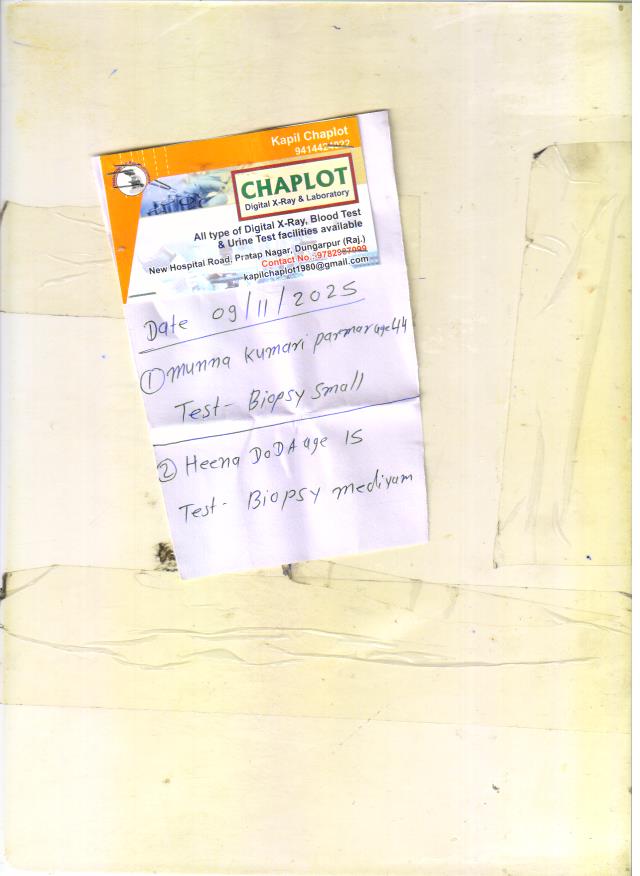 Kapil Chaplot
CHAPLOT
Digital X-Ray & Laboratory
All type of Digital X-Ray, Blood Test
& Urine Test facilities available
New Hospital Road, Pratap Nagar, Dungarpur (Raj.)
Contact No.:9782987099
kapilchaplot1980@gmail.com
Date 09/11/2025
① munna kumari parmar age 44
Test- Biopsy small
② Heena DoDA age 15
Test- Biopsy mediyam